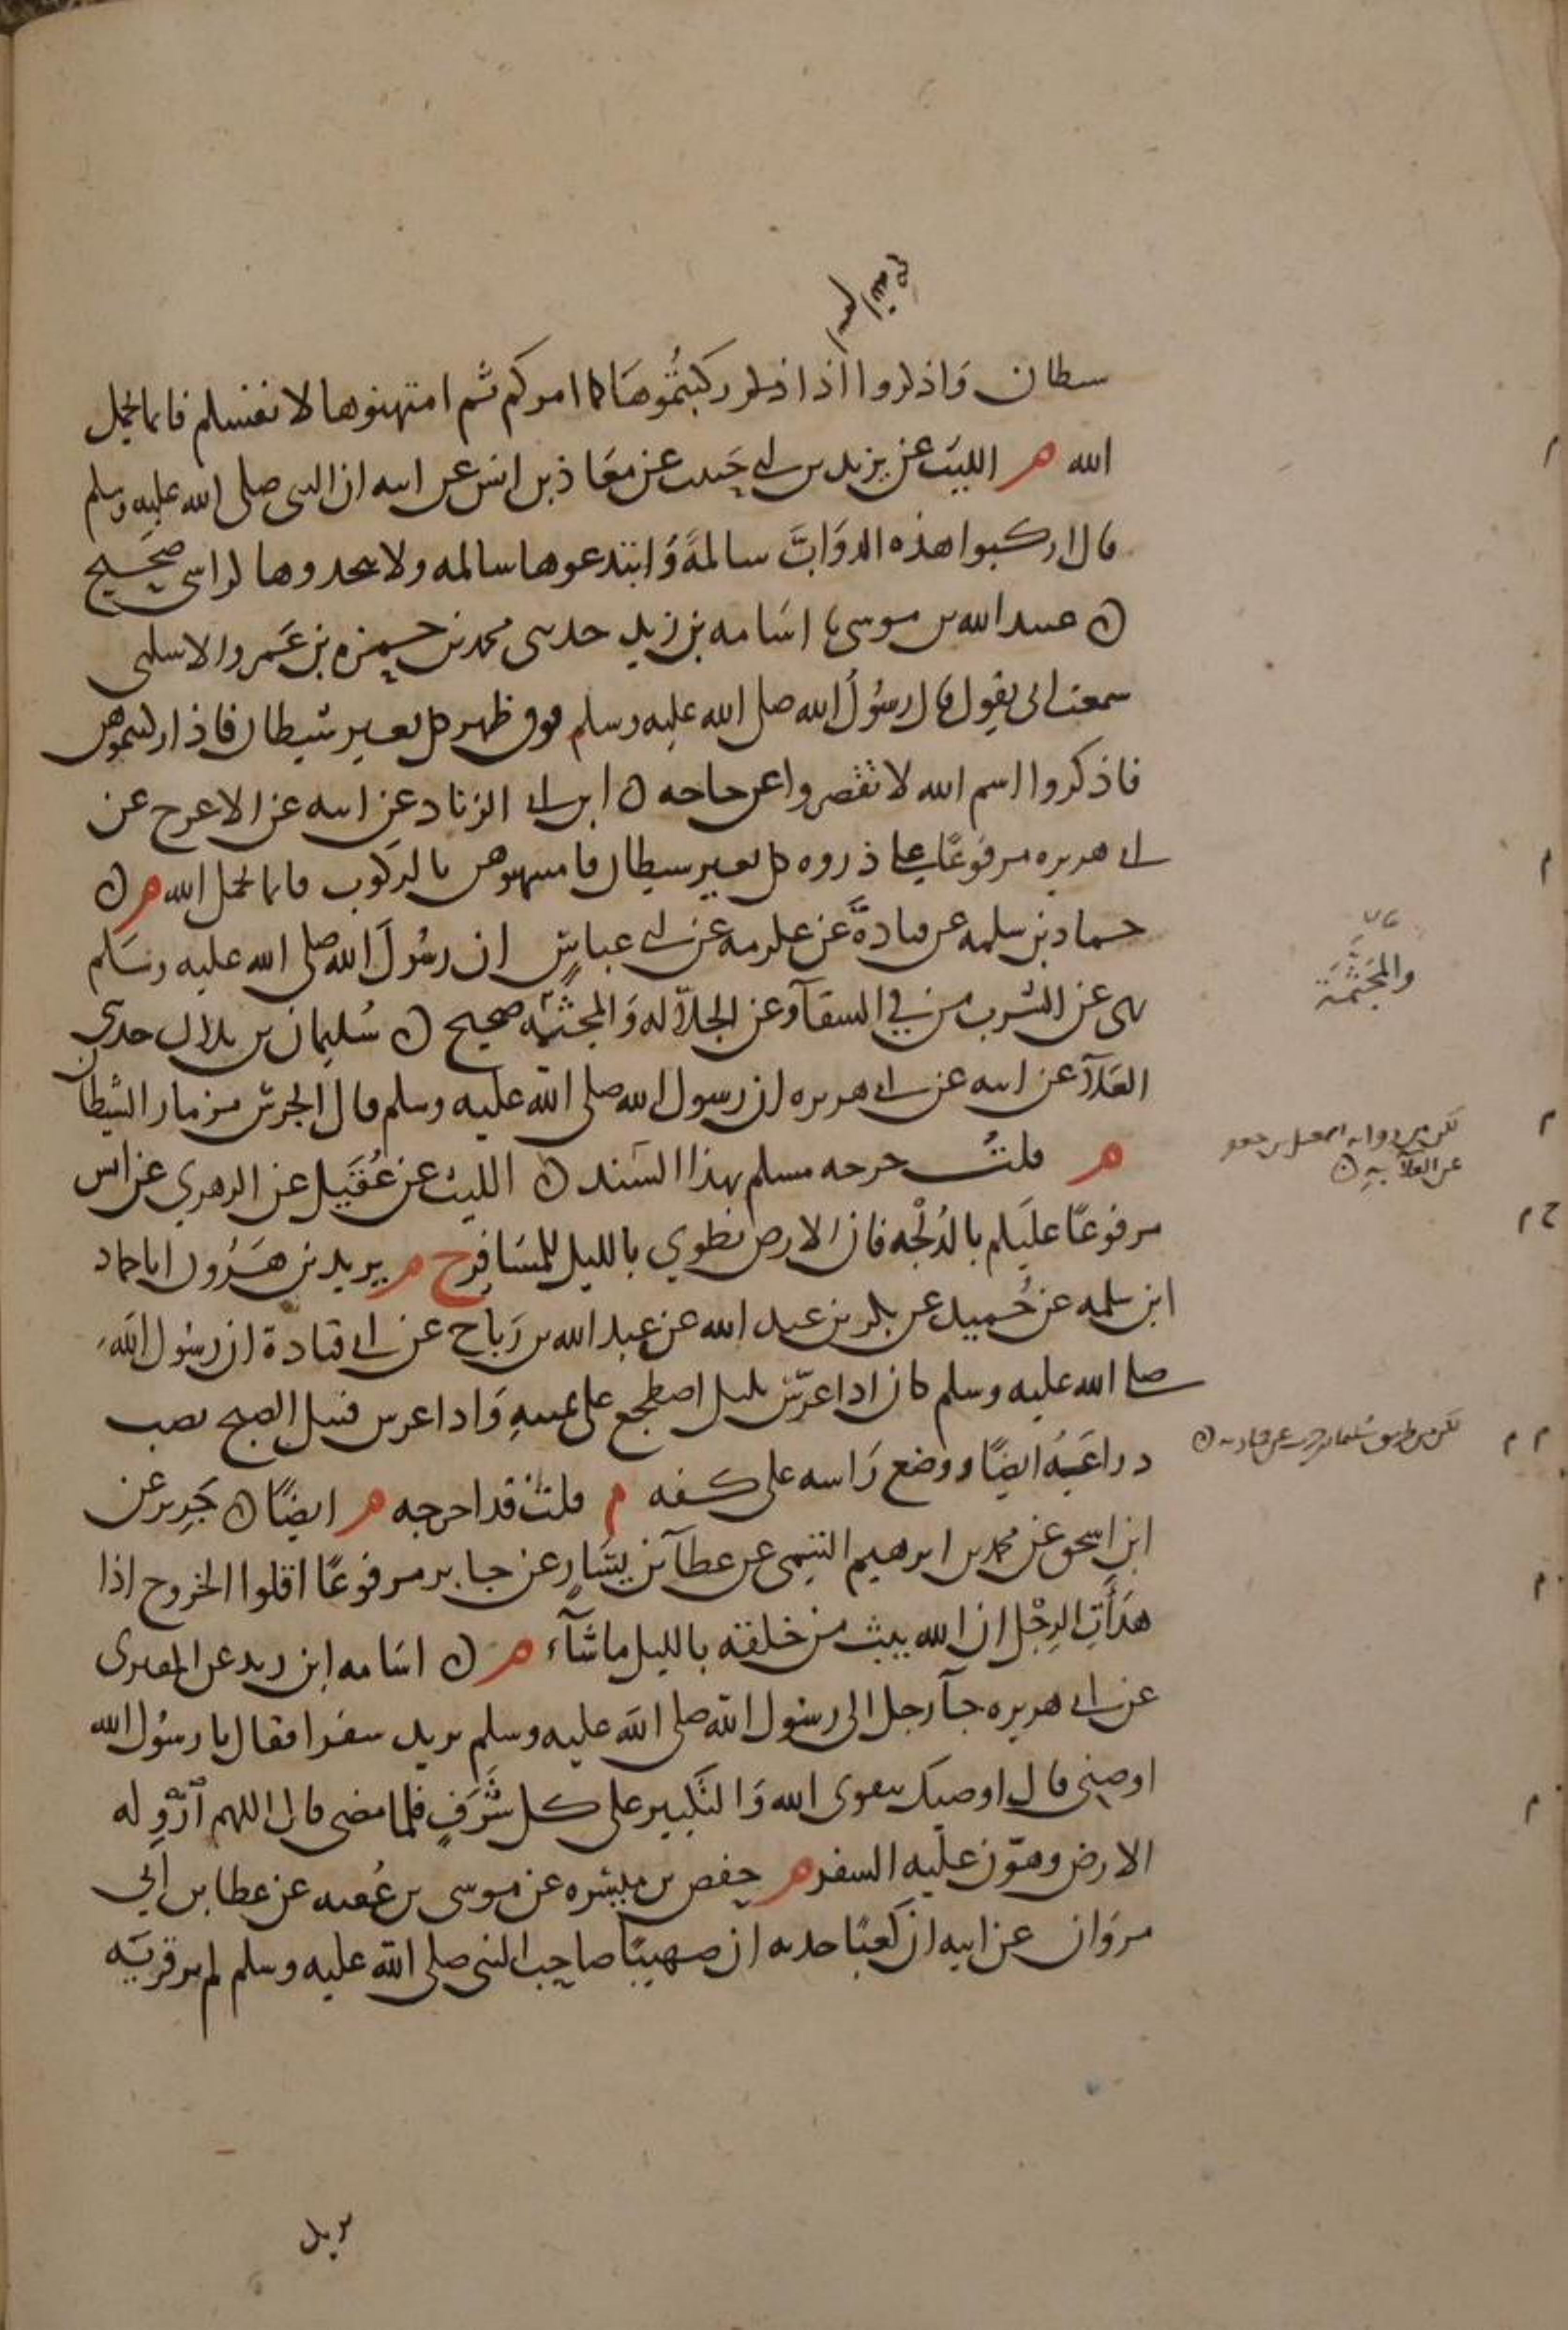 اسم الله
شيطان فاذكروا اذا ركبتموها كما امركم ثم امتهنوها لانفسكم فانما يحمل
الله م الليث عن يزيد بن ابي حبيب عن معاذ بن انس عن ابيه ان النبي صلى الله عليه وسلم
قال اركبوا هذه الدوابّ سالمةً وَابتدعوها سالمه ولا تتخذوها كراسي صحيح
ن عبيد الله بن موسى نا اسَامه بن زيد حدثني محمد بن حمزه بن عَمرو الاسلمي
سمعت ابي يقول قال رسُولُ الله صلى الله عليه وسلم فوق ظهر كل بعير شيطان فاذا ركبتموهن
فاذكروا اسم الله لا تقصروا عن حاجه ن ابن ابي الزناد عن ابيه عن الاعرج عن
ابي هريره مرفوعًا على ذروه كل بعير شيطان فامتهنوهن بالركوب فانما يحمل الله م ن
حماد بن سلمه عن قتادةَ عن عكرمه عن ابي عباسٍ ان رسُولَ الله صلى الله عليه وسَلم
نهى عن الشرب من في السقآ وعن الجلّاله وَالمجثمه صحيح ن سُليمان بن بلال حدثني
العَلآ عن ابيه عن ابي هريره ان رسول الله صلى الله عليه وسلم قال الجرس مزمار الشيطان
م قلتُ خرجه مسلم بهذا السَند ن الليث عن عُقَيل عن الزهري عن انس
مرفوعًا عليكم بالدُلْجه فان الارض تطوي بالليل للمسَافر خ م يزيد بن هَرُون انا حماد
ابن سلمه عن حُميد عن بكر بن عبد الله عن عبد الله بن رَباح عن ابي قتادة ان رسُول الله
صلى الله عليه وسلم كان اذا عرّس بليل اضطجع على يمينهِ وَاذا عرس قبيل الصبح نصب
دراعَيهُ ايضًا ووضع رَاسه على كفه م قلت قد اخرجه م ايضًا ن جَرِير عن
ابن اسحق عن محمد بن ابرهيم التيمي عن عطآ بن يسَارٍ عن جابر مرفوعًا اقلوا الخروج اذا
هَدَأَتِ الرِجْل ان الله يبث من خلقه بالليل ما شآء م ن اسَامه ابن زيد عن المقبري
عن ابي هريره جآ رجل الى رسُول الله صلى الله عليه وسلم يريد سفرا فقال يا رسُول الله
اوصني قال اوصيك بتقوى الله وَالتكبير على كل شَرَفٍ فلما مضى قال اللهم ازْوِ له
الارض وهوّن عليه السفر م حفص بن ميسره عن موسى بن عُقبه عن عطا بن ابي
مروَان عن ابيه ان كعبًا حدثه ان صهيبًا صاحب النبي صلى الله عليه وسلم لم ير قريَه
يريد
والمجَثَّمَة
لكن من روايه اسمعيل بن جعفر
عن العلآ به ن
خ م
لكن من طريق سُليمان بن حرب عن حماد به ن